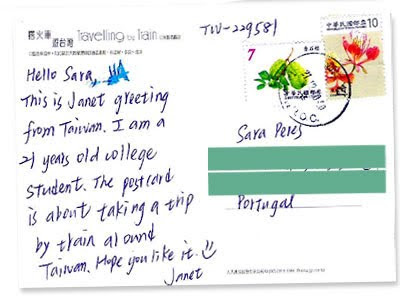 搭火車
遊台灣 Travelling by train
TW-229581
Hello Sara,
This is Janet greeting
from Taiwan. I am a
21 years old college
student. The postcard
is about taking a trip
by train around
Taiwan. Hope you like it.
Janet
7
中華民國郵票 10
R.O.C.
Sara Peres
Portugal